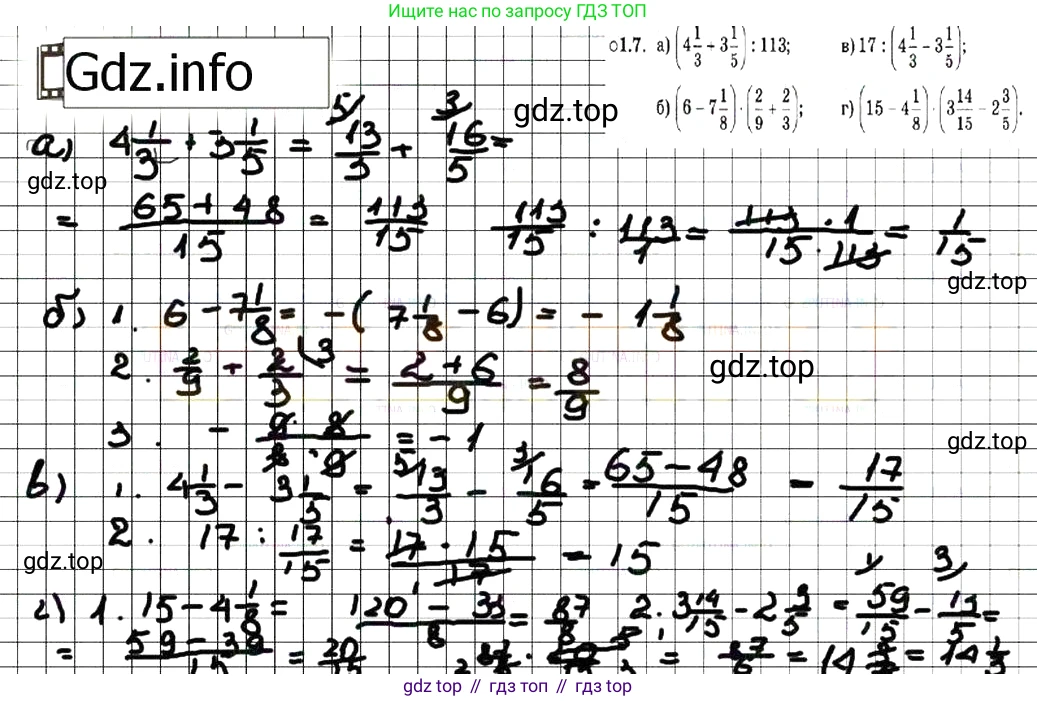 Ищите нас по запросу ГДЗ ТОП
Gdz.info
о1.7. а) (4 1/3 + 3 1/5) : 113; в) 17 : (4 1/3 − 3 1/5);
б) (6 − 7 1/8) · (2/9 + 2/3); г) (15 − 4 1/8) · (3 14/15 − 2 3/5).
gdz.top
а) 4 1/3 + 3 1/5 = 13/3 + 16/5 =
gdz.top
= 65 + 48/15 = 113/15 113/15 : 113/1 = 113 · 1/15 · 113 = 1/15
gdz.top
б) 1. 6 − 7 1/8 = −(7 1/8 − 6) = − 1 1/8
gdz.top
2. 2/9 + 2/3 = 2 + 6/9 = 8/9
3. − 9 · 8/8 · 9 = − 1
gdz.top
в) 1. 4 1/3 − 3 1/5 = 13/3 − 16/5 = 65 − 48/15 = 17/15
2. 17 : 17/15 = 17 · 15/17 = 15
gdz.top
г) 1. 15 − 4 1/8 = 120 − 33/8 = 87/8 2. 3 14/15 − 2 3/5 = 59/15 − 13/5 =
gdz.top // гдз топ // gdz.top